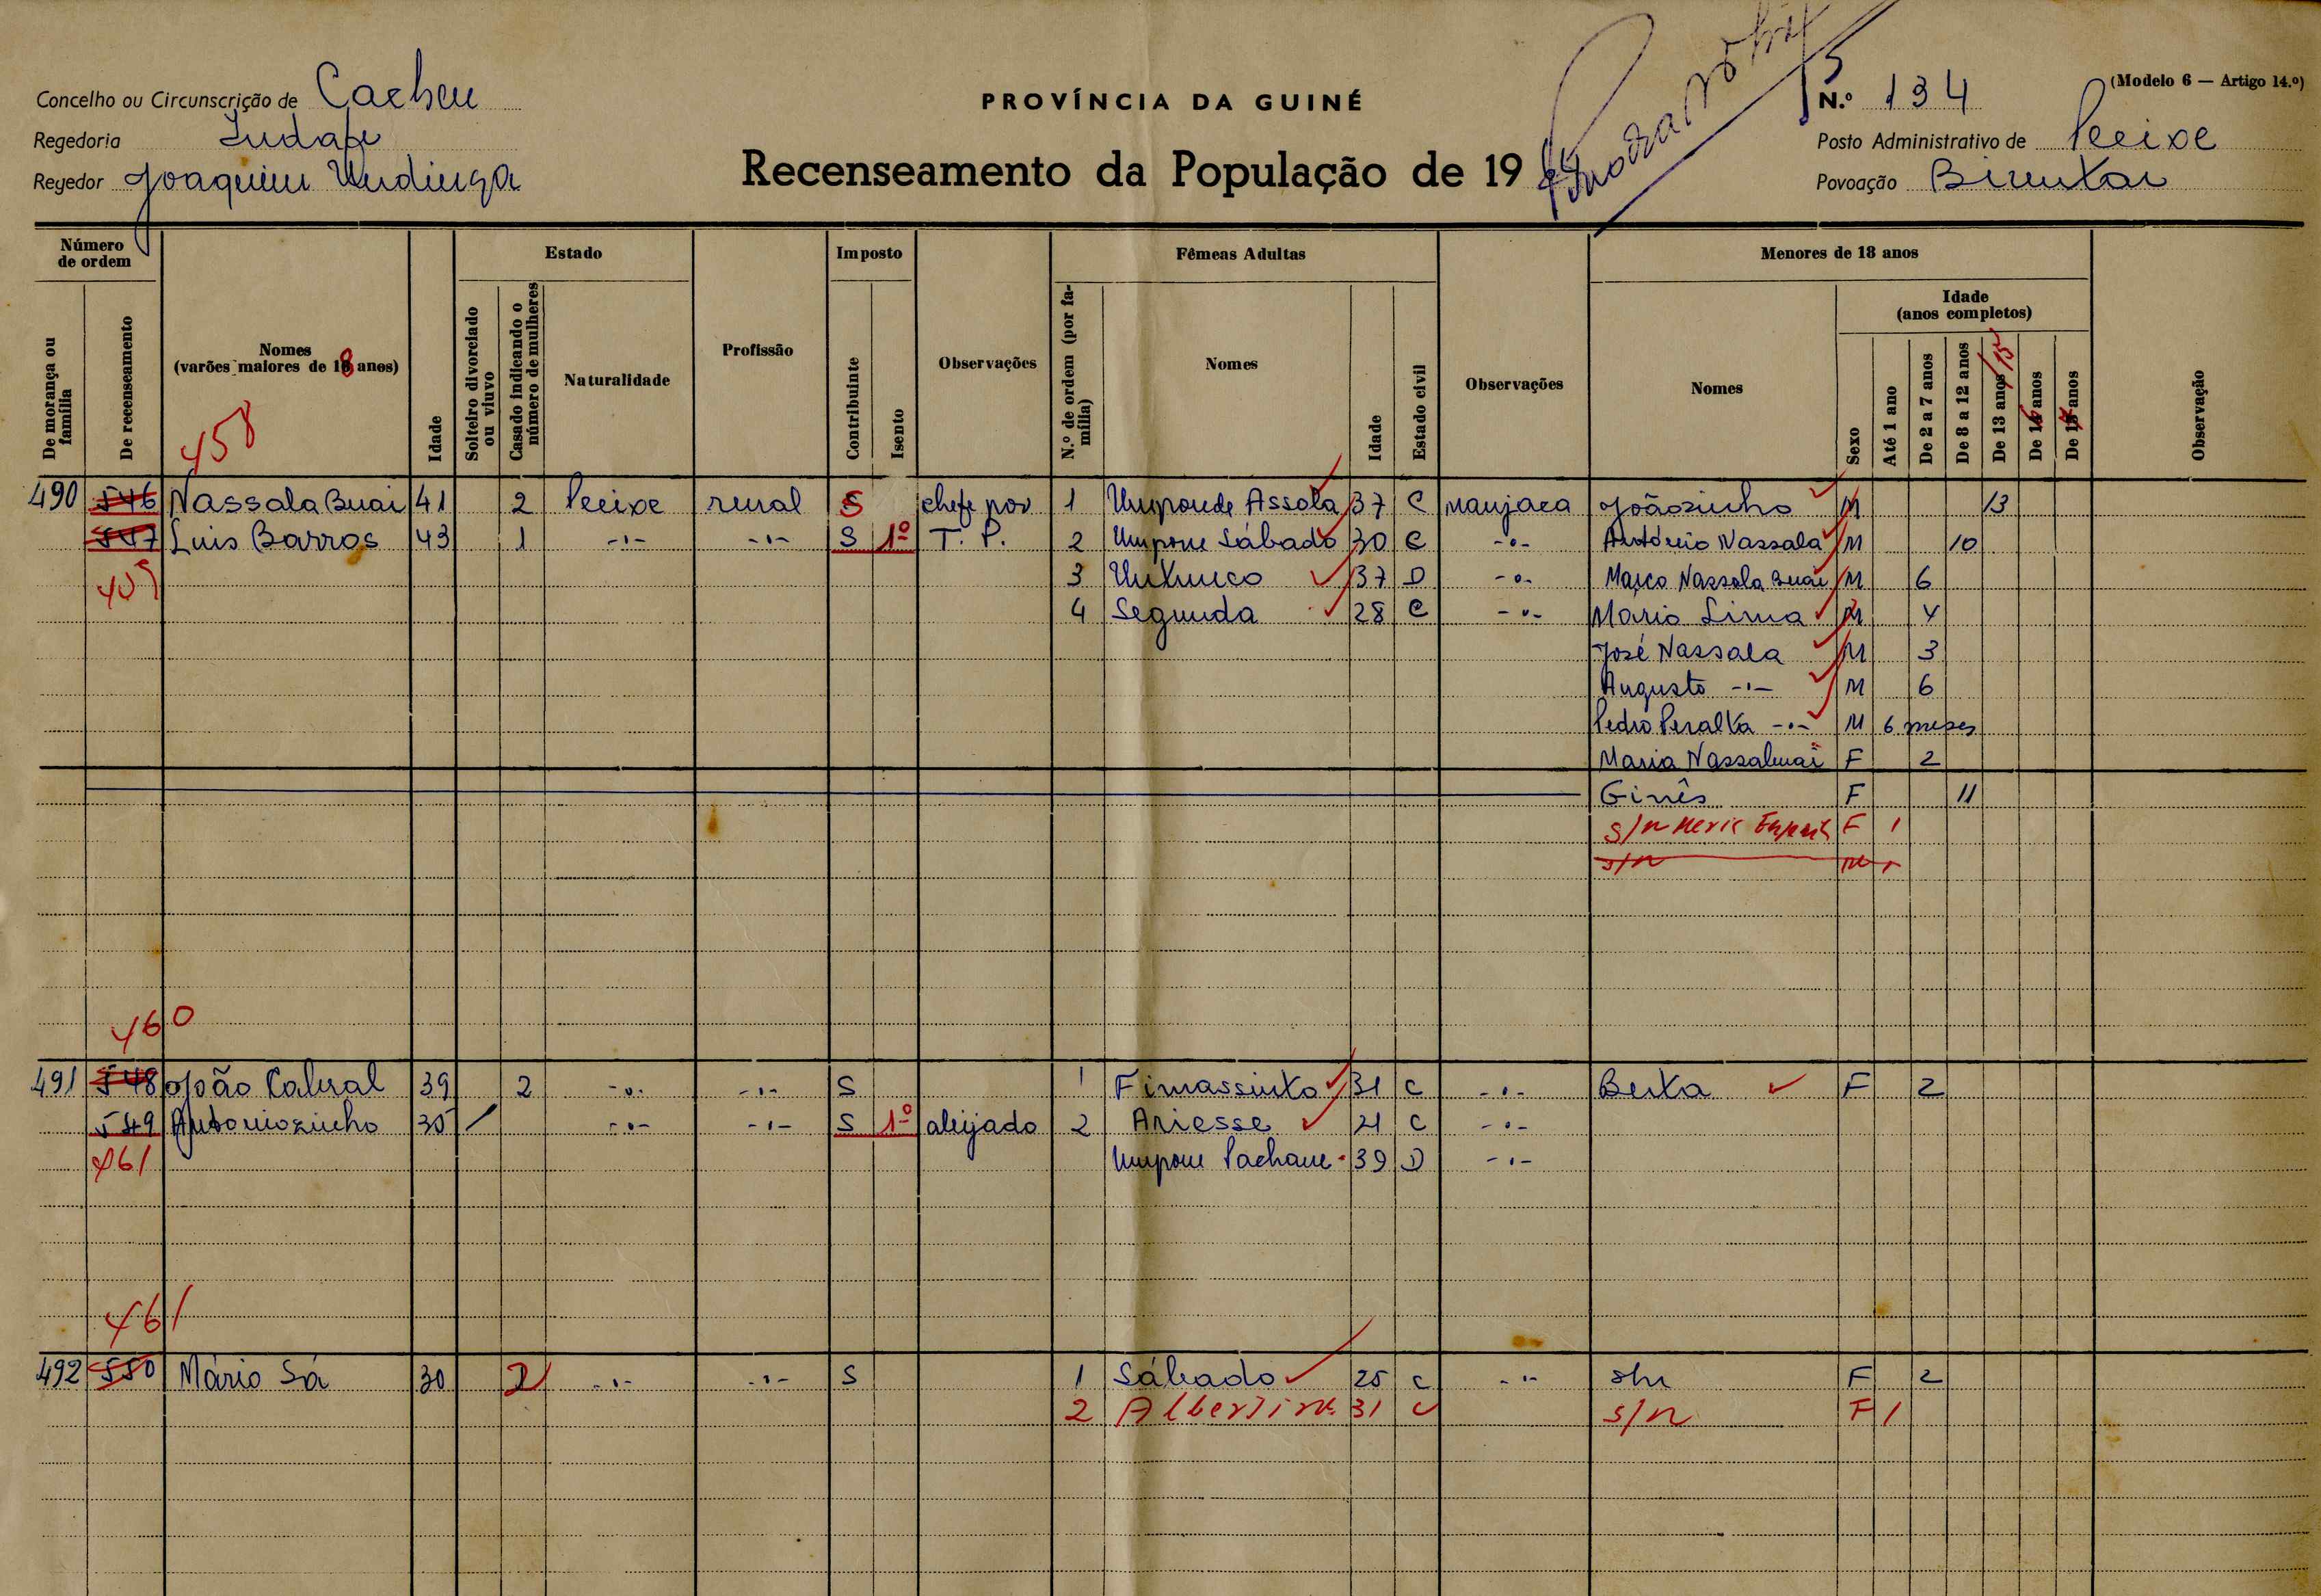 (Modelo 6 — Artigo 14.º)
Concelho ou Circunscrição de Cacheu
PROVÍNCIA DA GUINÉ
N.º 134
Regedoria
Posto Administrativo de Peeixe
Regedor Joaquim
Recenseamento da População de 19
Povoação
Número de ordem
Estado
Imposto
Fêmeas Adultas
Menores de 18 anos
De morança ou família
De recenseamento
Nomes
(varões maiores de 18 anos)
Idade
Solteiro divorciado ou viuvo
Casado indicando o número de mulheres
Naturalidade
Profissão
Contribuinte
Isento
Observações
N.º de ordem (por família)
Nomes
Idade
Estado civil
Observações
Nomes
Sexo
Idade
(anos completos)
Até 1 ano
De 2 a 7 anos
De 8 a 12 anos
De 13 anos / 15
Observação
458
490 546 Nassala Buai 41 2 Peeixe rural S chefe pov 1 Umponde Assola 37 C manjaca Joãozinho M 13
547 Luis Barros 43 1 -"- -"- S 1º T. P. 2 Umpone Sábado 30 C -"- António Nassala M 10
459 3 37 D -"- Marco Nassala Buai M 6
4 Segunda 28 C -"- Mário Lima M 4
José Nassala M 3
Augusto -"- M 6
Pedro Peralta -"- M 6 meses
Maria F 2
Ginês F 11
s/n F 1
s/n M 1
460
491 548 João Cabral 39 2 -"- -"- S 1 Fimassinto 31 C -"- Berta F 2
549 Antoniozinho 30 / -"- -"- S 1º aleijado 2 Ariesse 21 C -"-
461 Umpone Pachane 39 D -"-
461
492 550 Mário Sá 30 2 -"- -"- S 1 Sábado 25 C -"- s/n F 2
2 Albertina 31 C s/n F 1